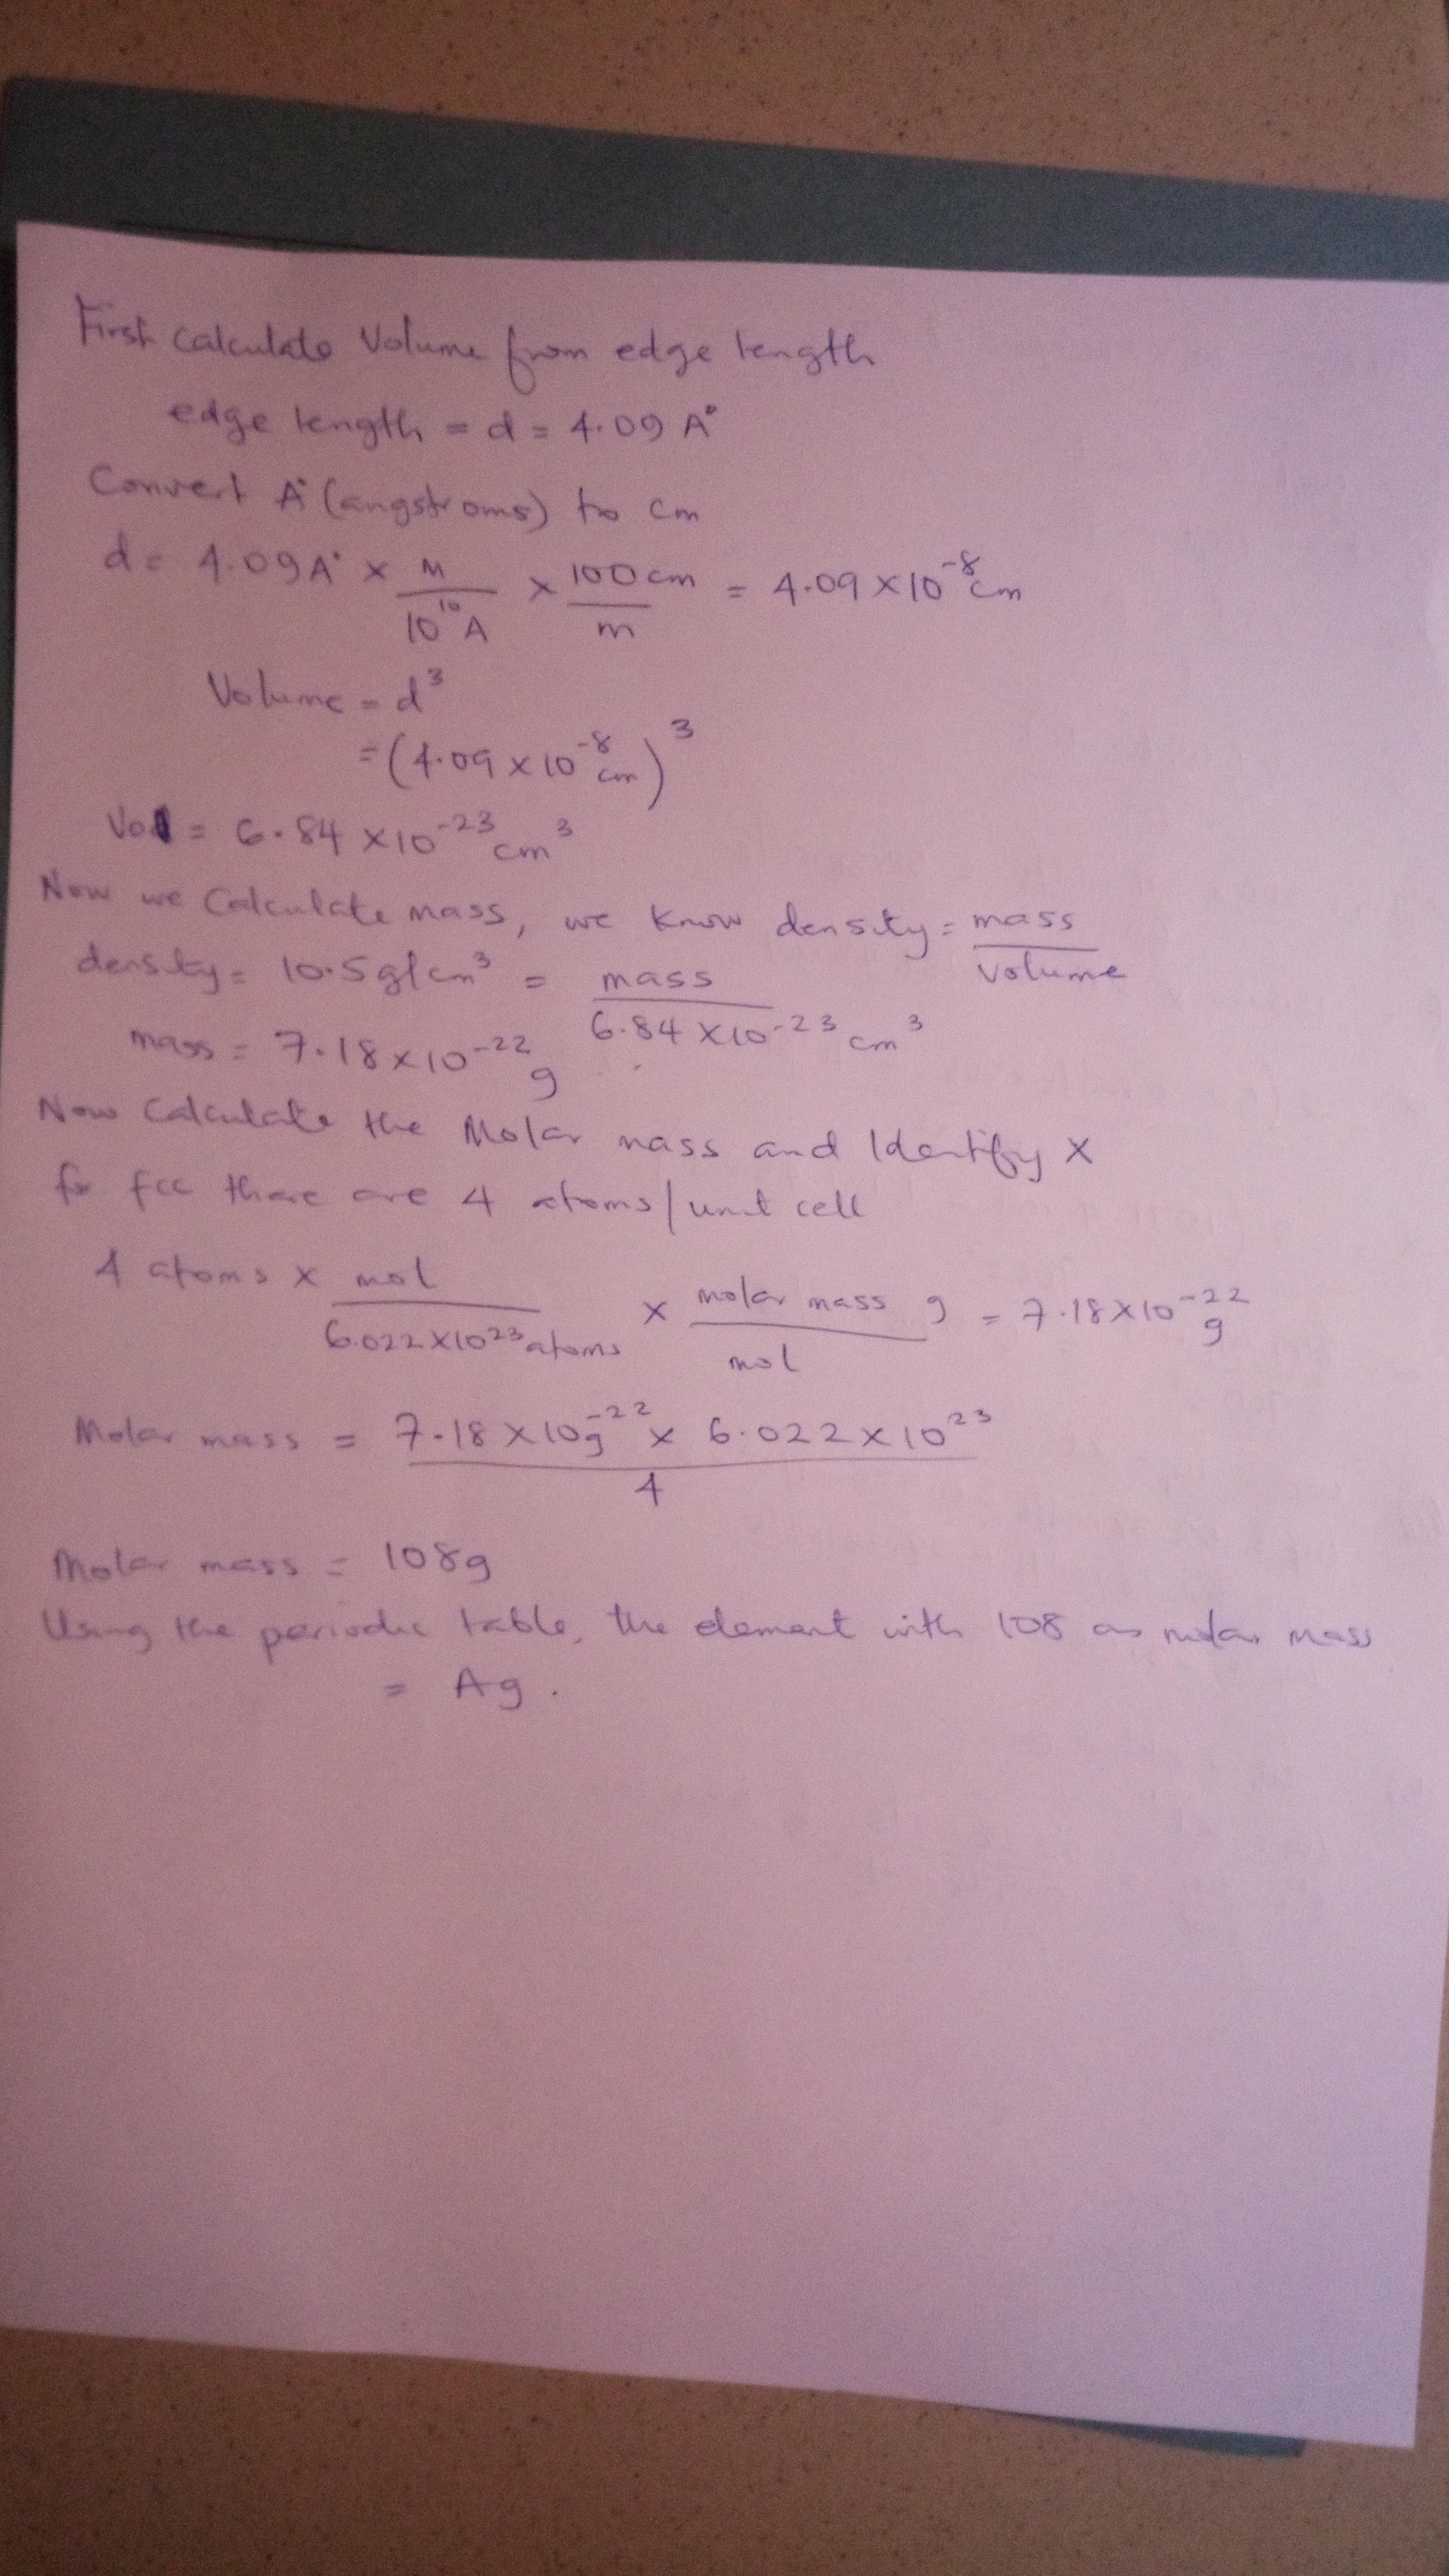 First calculate Volume from edge length
edge length = d = 4.09 A°
Convert A° (angstroms) to cm
d = 4.09A° × M/10^10 A × 100cm/m = 4.09 × 10^-8 cm
Volume = d^3
= (4.09 × 10^-8 cm)^3
Vol = 6.84 × 10^-23 cm^3
Now we Calculate mass, we know density = mass/volume
density = 10.5g/cm^3 = mass/6.84 × 10^-23 cm^3
mass = 7.18 × 10^-22 g
Now Calculate the Molar mass and Identify X
for fcc there are 4 atoms/unit cell
4 atoms × mol/6.022 × 10^23 atoms × molar mass g/mol = 7.18 × 10^-22 g
Molar mass = 7.18 × 10^-22 g × 6.022 × 10^23/4
Molar mass = 108g
Using the periodic table, the element with 108 as molar mass
= Ag.